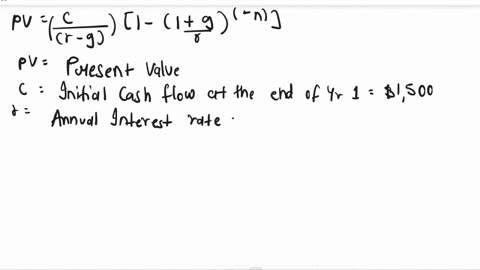 PV = (C/(r-g)) [1 - (1+g/r)^(-n)]
PV = Present Value
C = Initial Cash flow at the end of Yr 1 = $1,500
r = Annual Interest rate .